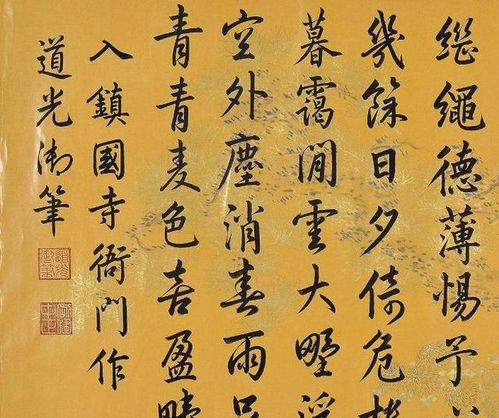 繼繩德薄惕予
幾餘日夕倚危
暮靄閒雲大野
空外塵消春雨
青青麦色喜盈疇
入鎮國寺衙門作
道光御筆